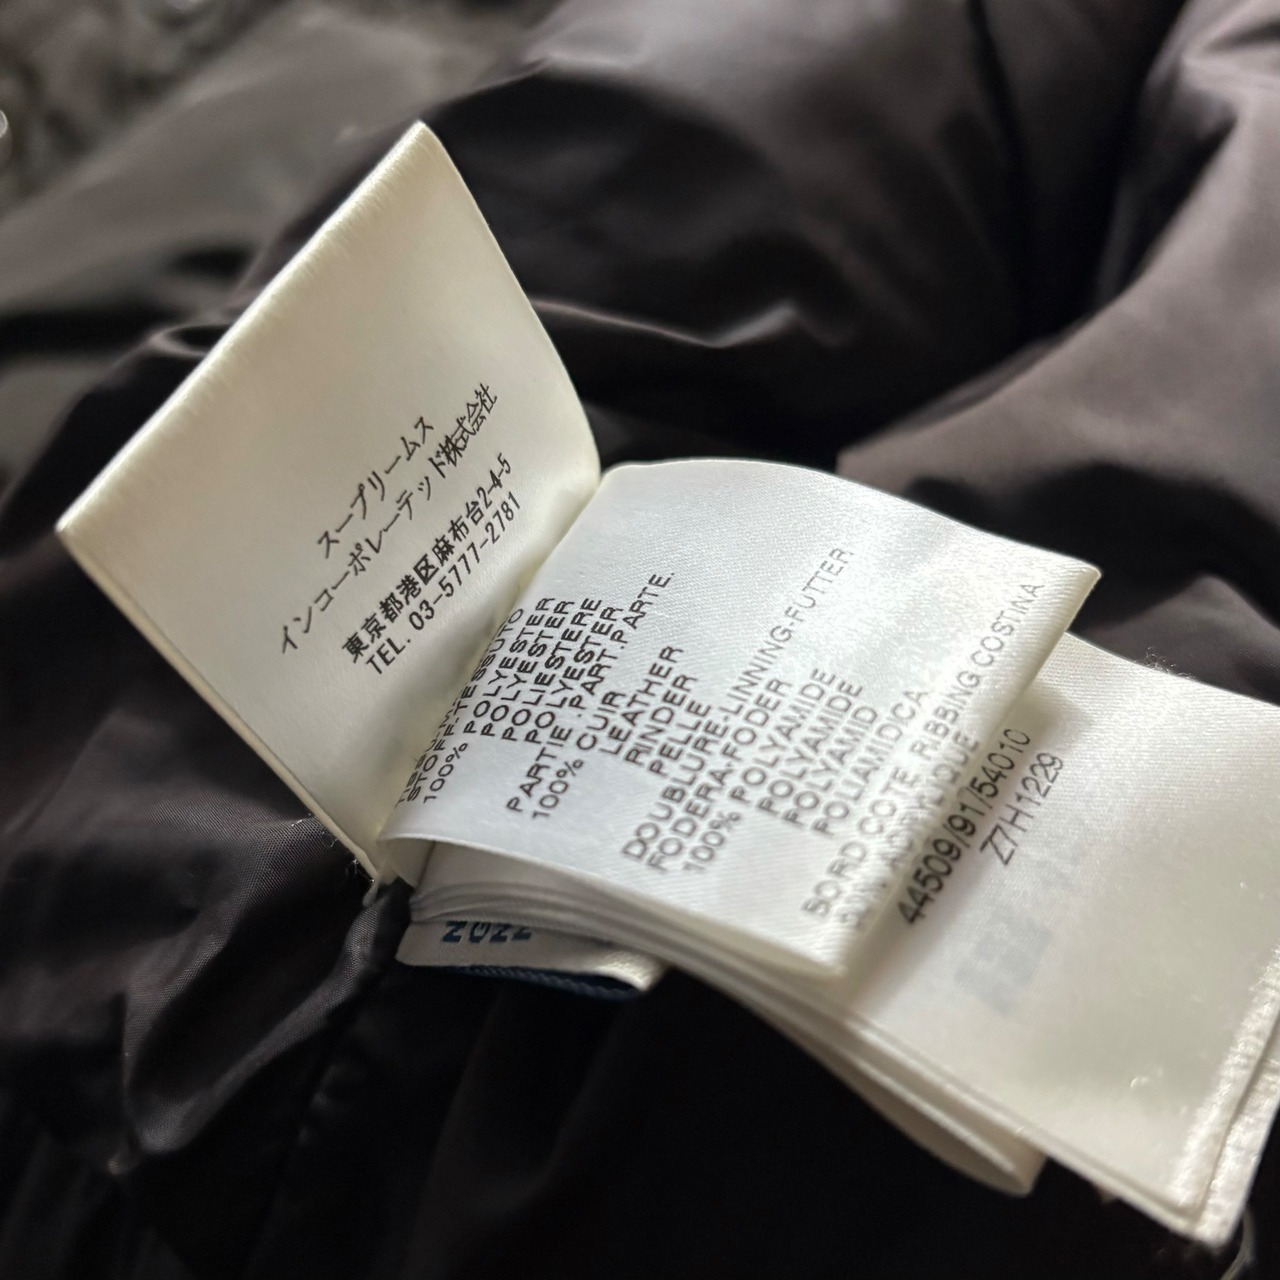 スープリームス
インコーポレーテッド株式会社
東京都港区麻布台2-4-5
TEL. 03-5777-2781
100% POLYESTER
POLYESTER
POLIESTERE
POLYESTER
PARTIE.PART.PARTE.
100% CUIR
LEATHER
RINDER
PELLE
DOUBLURE-LINNING-FUTTER.
FODERA.FODER
100% POLYAMIDE
POLYAMIDE
POLYAMID
POLIAMIDICA
BORD COTE. RIBBING.COSTINA
44509/91/54010
Z7H1229